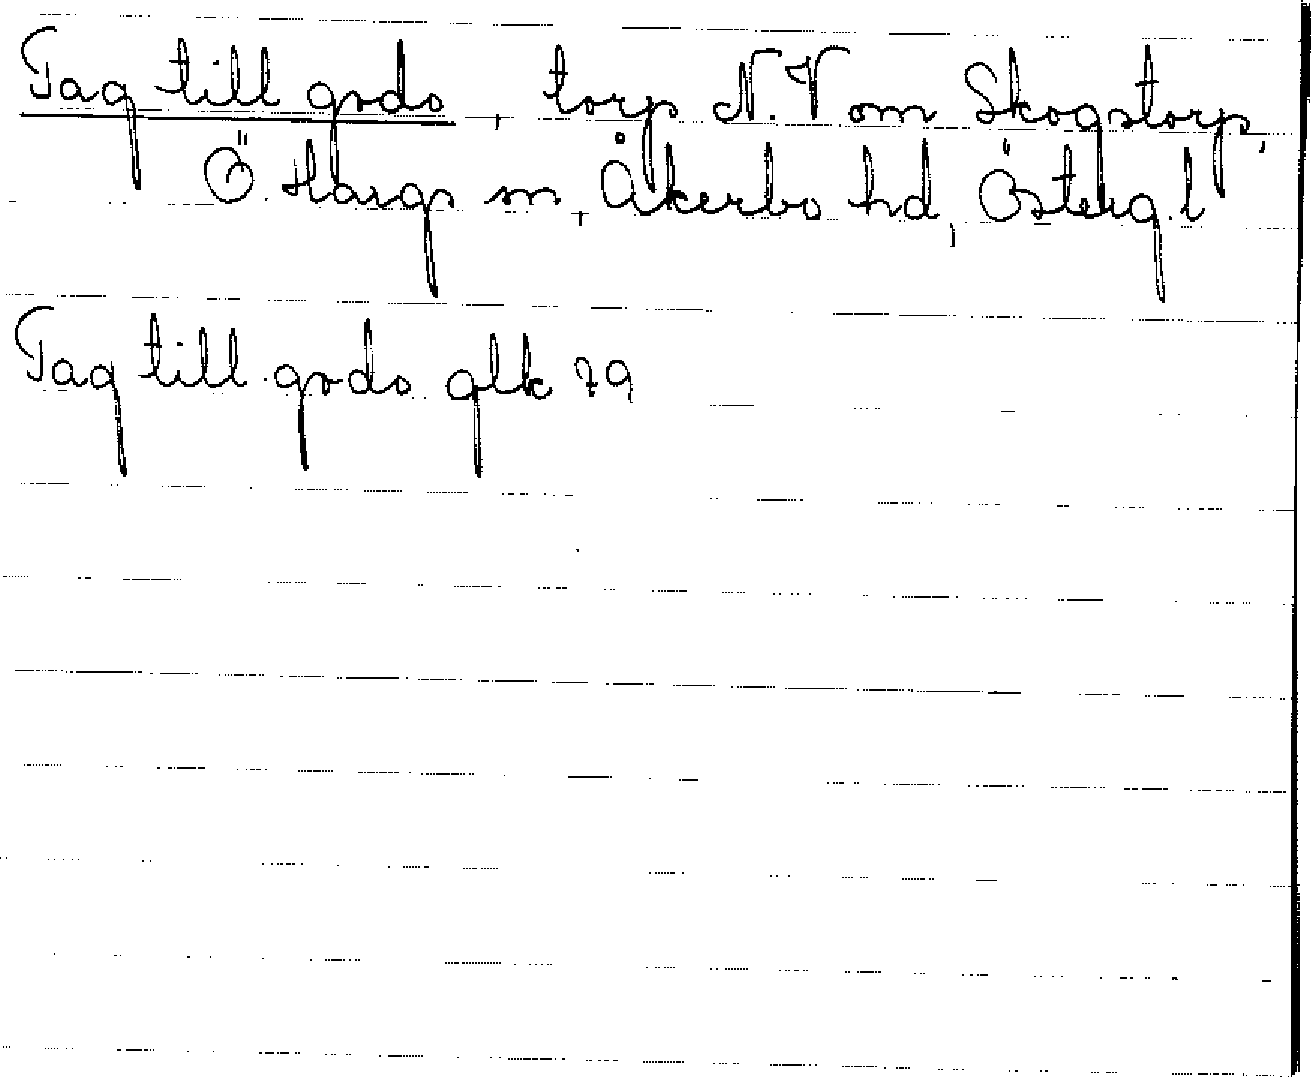 Tag till godo, torp N.V om Skogstorp,
Ö Hargs sn, Åkerbo hd, Österg. l
Tag till godo glk 79